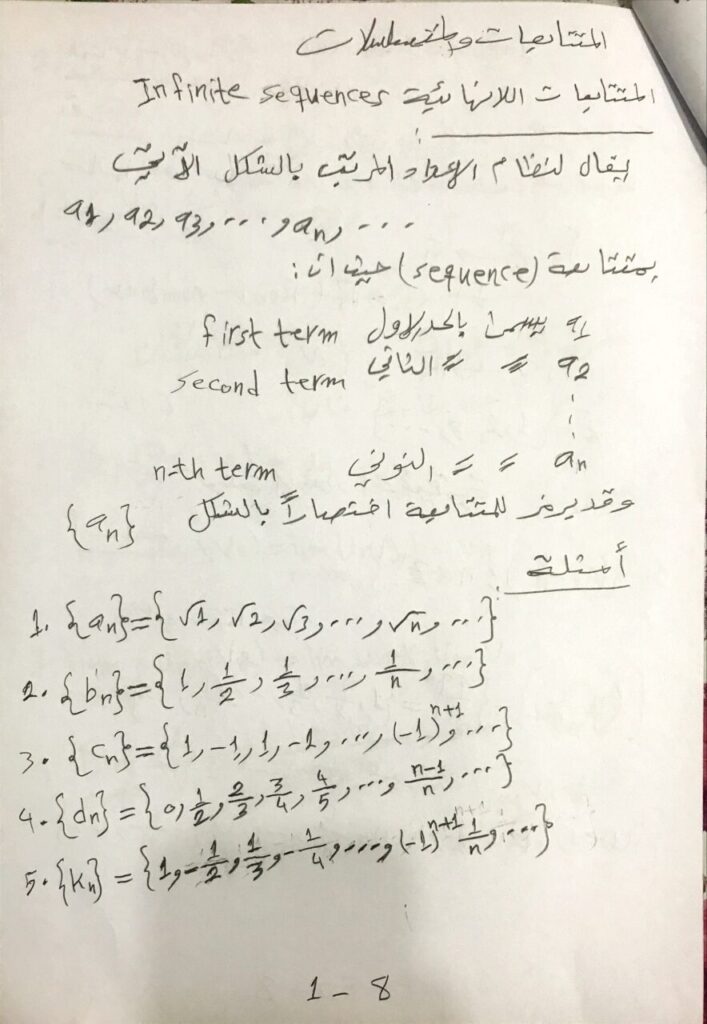 المتتابعات والمتسلسلات
المتتابعات اللانهائية Infinite sequences
:
يقال لنظام الاعداد المرتب بالشكل الآتي
a1, a2, a3, ..., an, ...
بمتتابعة (sequence) حيث ان:
a1 يسمى بالحد الاول first term
a2 〃 〃 الثاني second term
⋮
an 〃 〃 النوني n-th term
وقد يرمز للمتتابعة اختصاراً بالشكل {an}
أمثلة:
1. {an}={√1, √2, √3, ..., √n, ...}
2. {bn}={1, 1/2, 1/3, ..., 1/n, ...}
3. {cn}={1, -1, 1, -1, ..., (-1)^n+1, ...}
4. {dn}={0, 1/2, 2/3, 3/4, 4/5, ..., n-1/n, ...}
5. {kn}={1, -1/2, 1/3, -1/4, ..., (-1)^n+1 1/n, ...}
1 - 8